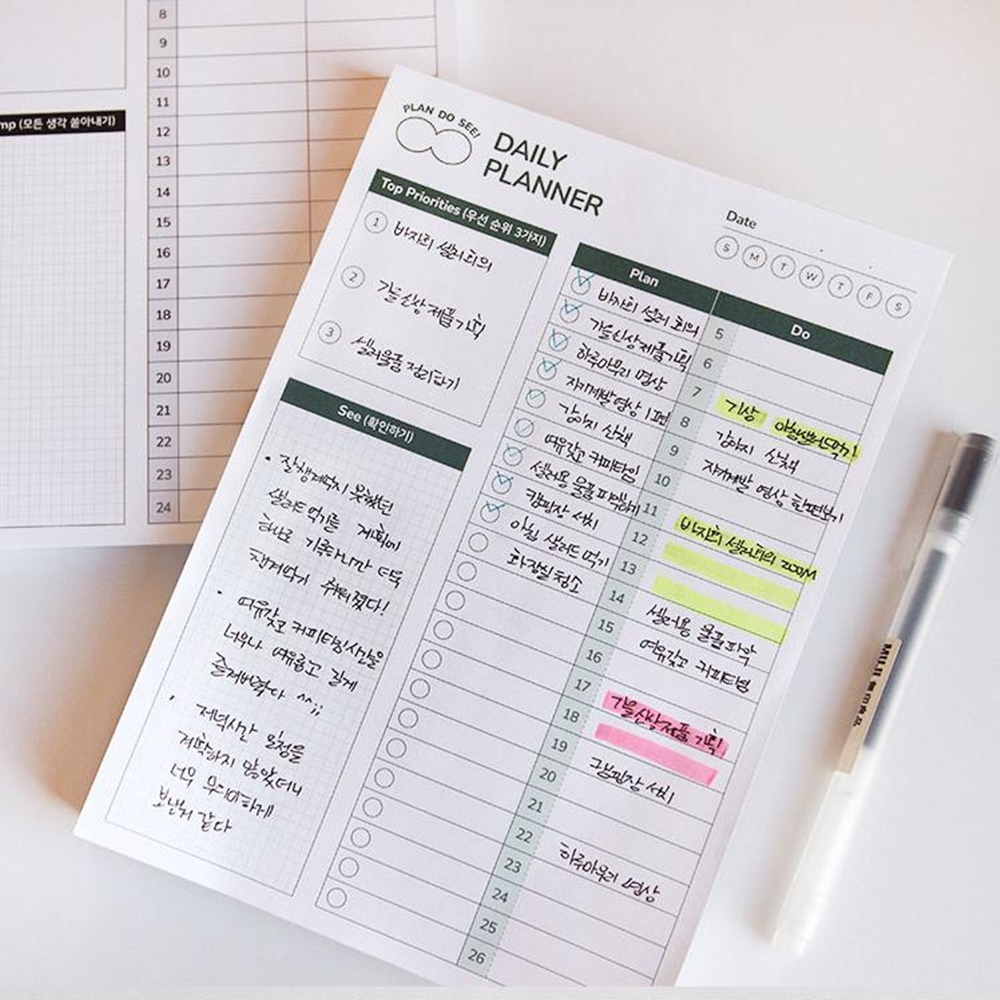 8
9
10
11
12
13
14
15
16
17
18
19
20
21
22
23
24
mp (모든 생각 쏟아내기)
PLAN DO SEE!
DAILY
PLANNER
Date
S M T W T F S
Top Priorities (우선 순위 3가지)
1 바자회 셀러회의
2 가을신상제품기획
3 셀러물품 정리하기
See (확인하기)
• 잘챙겨먹지 못했던
샐러드 먹기를 계획에
하나로 기록하니깐 더욱
챙겨먹기 쉬워졌다!
• 여유갖고 커피타임시간을
너무나 여유롭고 길게
즐겨버렸다 ^^;;
• 저녁시간 일정을
계획하지 않았더니
너무 무의미하게
보낸거 같다
Plan
바자회 셀러 회의
가을신상제품기획
하루마무리 명상
자기계발영상 1편
강아지 산책
여유갖고 커피타임
셀러용 물품 파악하기
캠핑장 서치
아침 샐러드 먹기
화장실 청소
Do
5
6
7 기상 아침샐러드먹기!
8 강아지 산책
9 자기계발 영상 한편보기
10
11 바자회 셀러회의 ZOOM
12
13
14 셀러용 물품파악
15 여유갖고 커피타임
16
17 가을신상제품 기획
18
19 그캠핑장 서치
20
21
22 하루마무리 명상
23
24
25
26
MUJI 無印良品